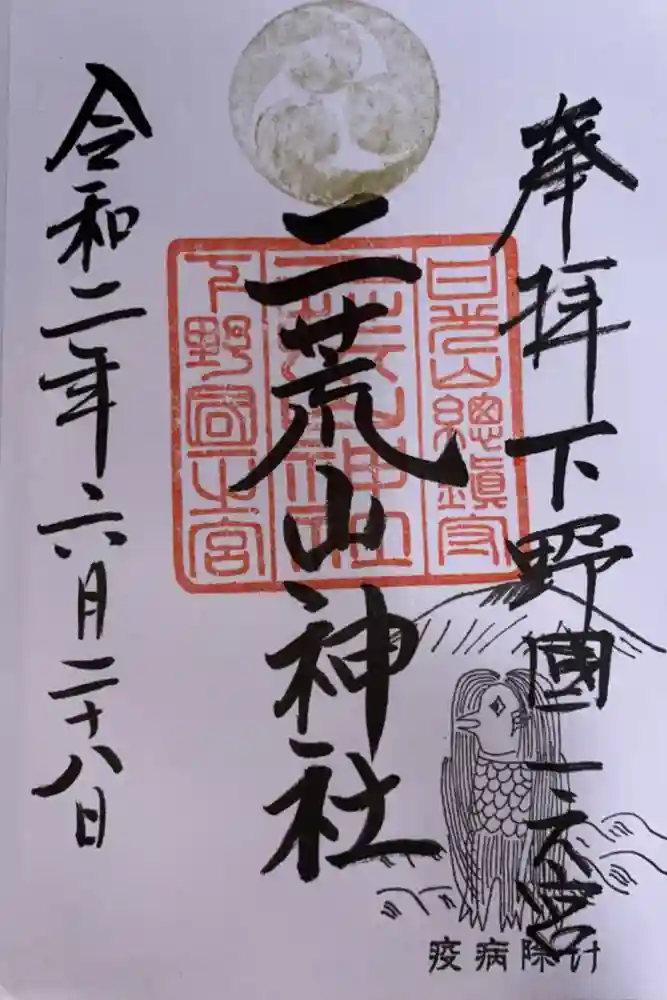 奉拝下野國一之宮
二荒山神社
令和二年六月二十八日
日光山總鎮守
二荒山神社
下野國一之宮
疫病除け